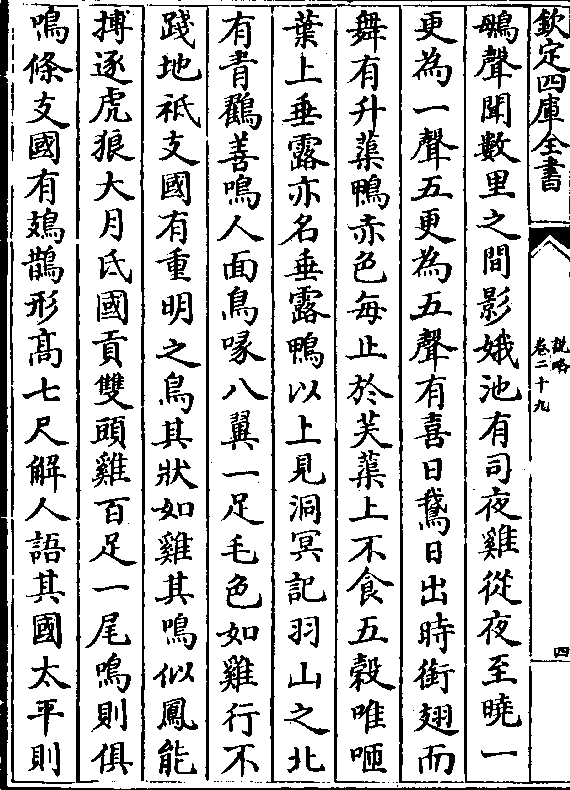 欽定四庫全書
說略
卷二十九
四
鵾聲聞數里之間影娥池有司夜雞從夜至曉一
更為一聲五更為五聲有喜日鵞日出時銜翅而
舞有升蕖鴨赤色每止於芙蕖上不食五穀唯咂
葉上垂露亦名垂露鴨以上見洞冥記羽山之北
有青鸛善鳴人面鳥喙八翼一足毛色如雞行不
踐地祗支國有重明之鳥其狀如雞其鳴似鳳能
搏逐虎狼大月氏國貢雙頭雞百足一尾鳴則俱
鳴條支國有鳷鵲形高七尺解人語其國太平則